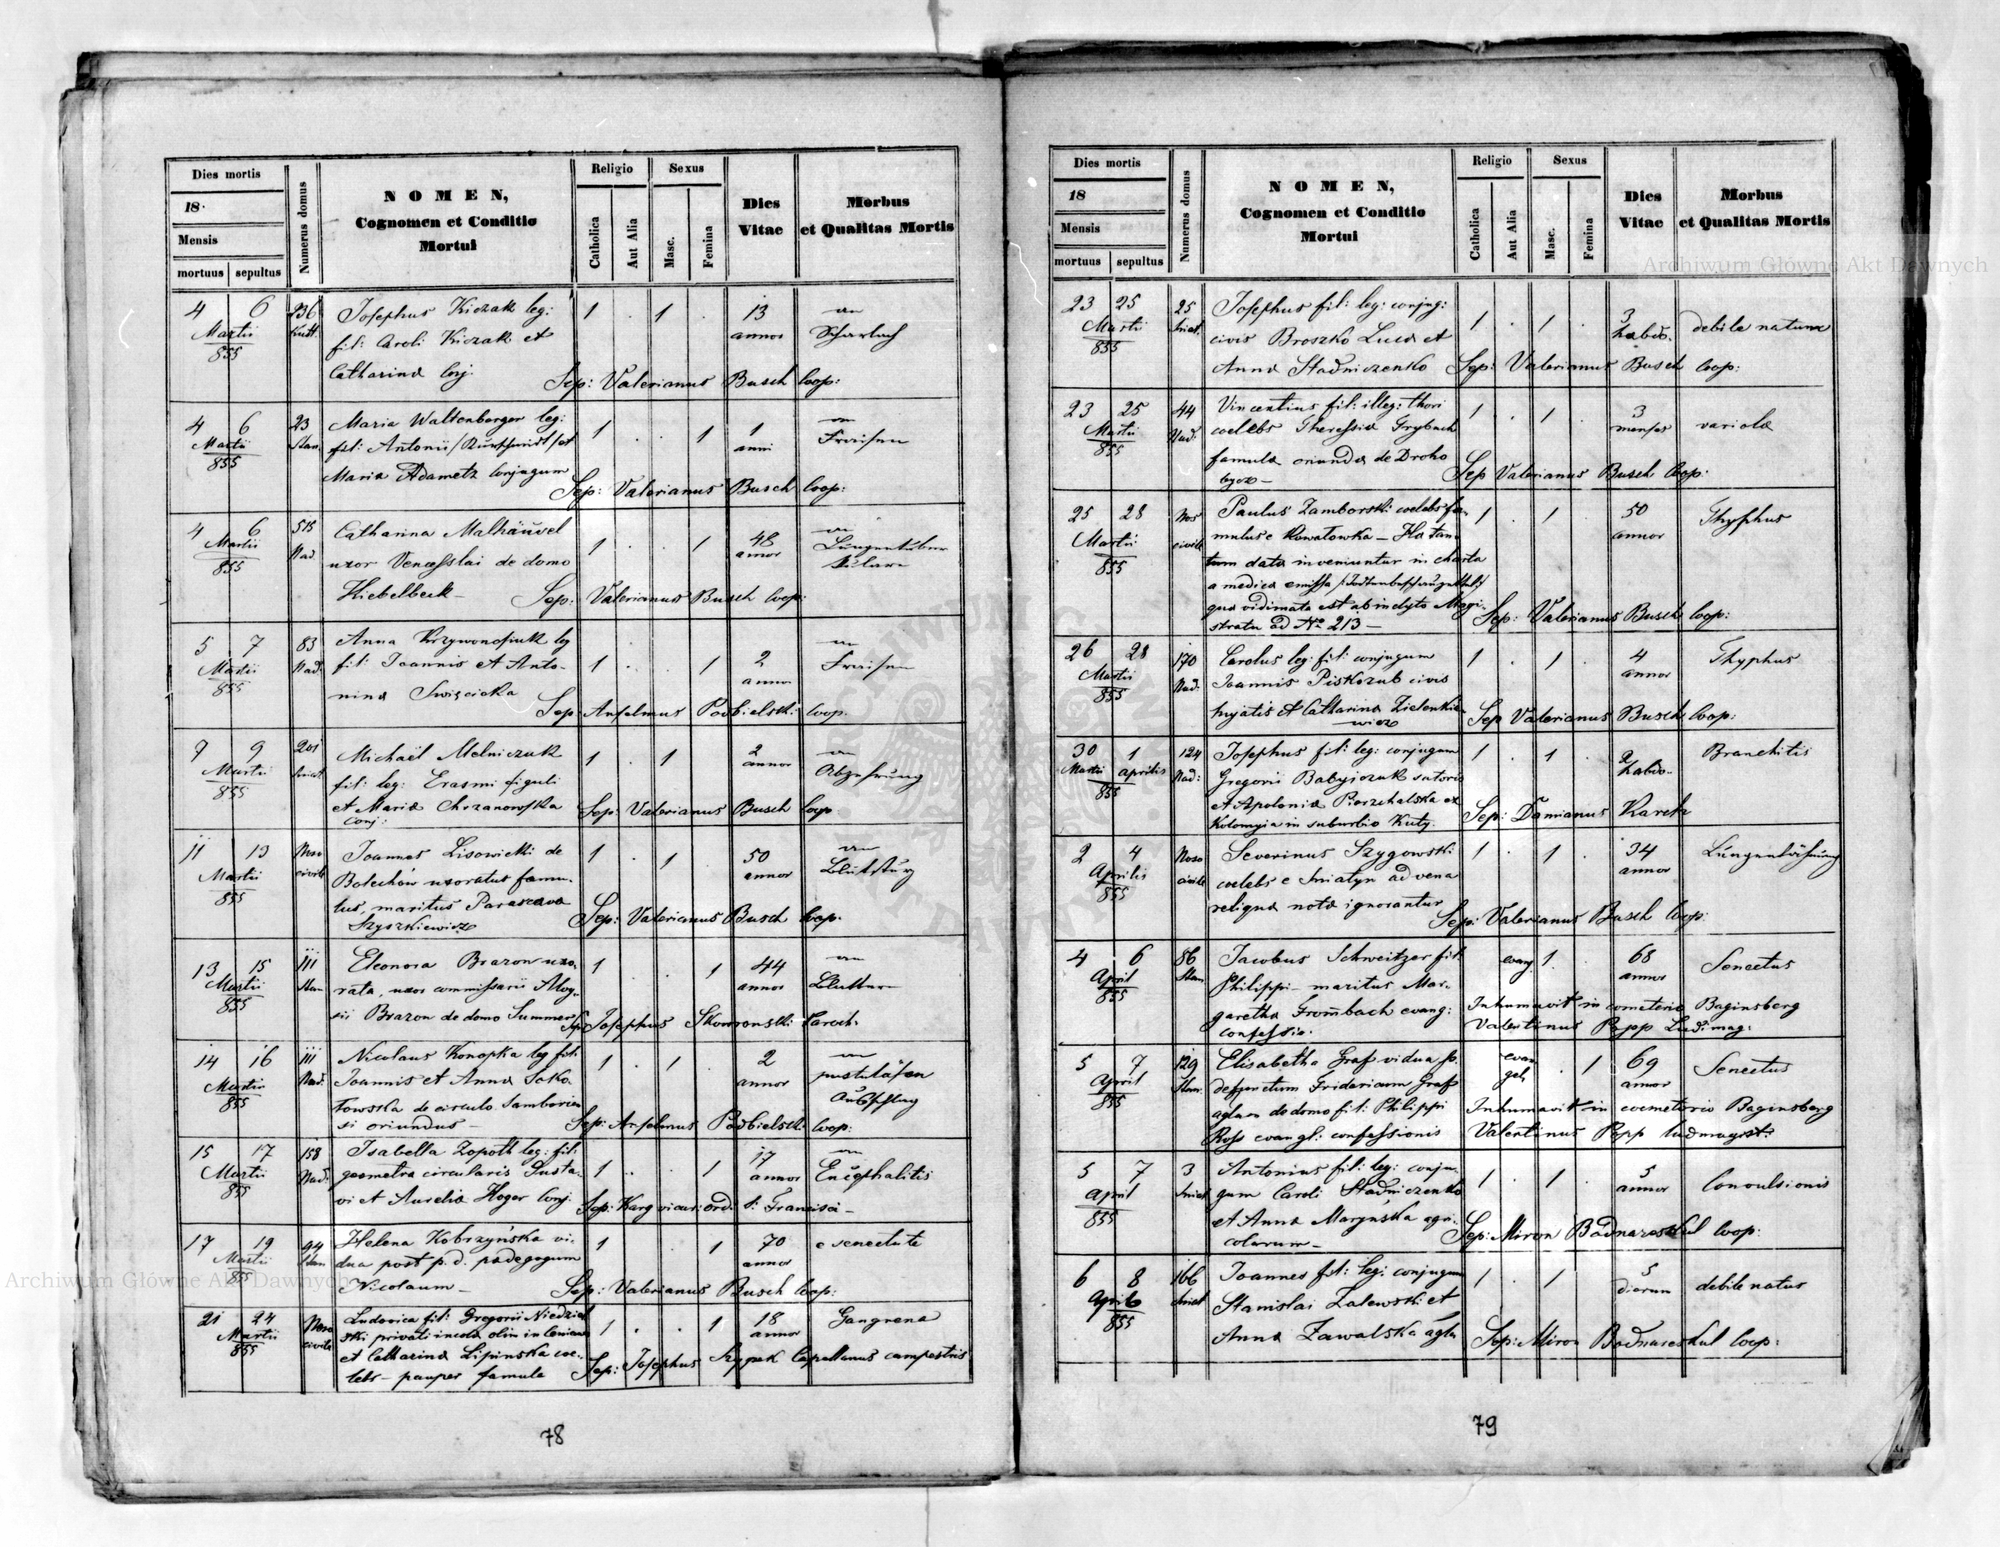 Dies mortis
18
Mensis
mortuus sepultus
Numerus domus
NOMEN,
Cognomen et Conditio
Mortui
Religio
Catholica
Aut Alia
Sexus
Masc.
Femina
Dies
Vitae
Morbus
et Qualitas Mortis
4 6 236 Josephus Kiczak leg: 1 . 1 . 13
Martii Kutt. fil: Caroli Kiczak et annor Scharlach
855
Catharina Conj. Sep: Valerianus Busch Coop:
4 6 23 Maria Waltenberger leg: 1 . . 1 1
Martii Stan. fil: Antonii et anni Fraisen
855 Maria Adametz Conjugum
Sep: Valerianus Busch Coop:
4 6 515 Catharina Malhäuvel 1 . . 1 48
Martii Nad. uxor Venceslai de domo annor
855
Hiebelbeck Sep: Valerianus Busch Coop:
5 7 83 Anna Krzywonosiuk leg 1 . . 1 2
Martii Nad. fil: Joannis et Anto- annor Fraisen
855 nina Swięcicka
Sep: Anselmus Podbielski Coop.
7 9 201 Michaël Melniczuk 1 . 1 2
Martii Sniat. fil: leg: Erasmi figuli annor Abzehrung
855 et Maria Chrzanowska Sep: Valerianus Busch Coop
Conj:
11 13 Noso Joannes Lisowicki de 1 . 1 . 50
Martii civili Bolechów uxoratus famu- annor Blutsturz
855 lus, maritus Parasceva Sep: Valerianus Busch Coop.
Szyszkiewicz
13 15 111 Eleonora Brazon uxo- 1 . . 1 44
Martii Stan. rata, uxor commissarii Aloy- annor
855 sii Brazon de domo Summer Sep: Josephus Skowronski Paroch.
14 16 111 Nicolaus Konopka leg fil: 1 . 1 . 2
Martii Nad. Joannis et Anna Soko- annor
855 łowska de circulo Samborien Ausschlag
si oriundus Sep: Anselmus Podbielski Coop:
15 17 158 Isabella Zopoth leg: fil: 1 . . 1 17
Martii Nad. geometra circularis Gusta- annor Encephalitis
855 vi et Aurelia Hoger Conj. Sep: Karg vicar: ord. S: Francisci
17 19 94 Helena Kobrzyńska vi- 1 1 70 e senectute
Martii Stan dua post p. d. pædegogum annor
855 Nicolaum Sep: Valerianus Busch Coop:
21 24 Noso Ludovica fil: Gregorii 1 . . 1 18 Gangrena
Martii civili ski privati incola olim in annor
855 et Catharina Lipinska coe-
lebs pauper famula Sep: Josephus Szypek Capellanus campestris
78
Dies mortis
18
Mensis
mortuus sepultus
Numerus domus
NOMEN,
Cognomen et Conditio
Mortui
Religio
Catholica
Aut Alia
Sexus
Masc.
Femina
Dies
Vitae
Morbus
et Qualitas Mortis
23 25 25 Josephus fil: leg: conjug: 1 . 1 . 3
Martii Sniat. civis Broszko Luca et hebdo. debile natura
855 Anna Stadniczenko Sep: Valerianus Busch Coop:
23 25 44 Vincentius fil: illeg: thori 1 . 1 3
Martii Nad. coelebs Theresia Frybach menses variola
855 famula oriunda de Droho
bycz Sep Valerianus Busch Coop:
25 28 Nos Paulus Zamborski coelebs fa- 1 . 1 . 50 Thyphus
Martii civili mulus e Kowatowka annor
855 tum data inveniuntur in charta
a medico emissa
qua vidimata est ab inclyto Magi-
stratu ad No 213 Sep: Valerianus Busch Coop:
26 28 170 Carolus leg: fil: conjugum 1 . 1 . 4 Thyphus
Martii Nad. Joannis Piskozub civis annor
855 hyjatis et Catharina Zielenkie-
wicz Sep Valerianus Busch Coop:
30 1 124 Josephus fil: leg: conjugum 1 . 1 . 2 Branchitis
Martii Aprilis Nad: Gregorii Babyjczuk sutoris hebdo.
855 et Apolonia ex
Kolomyia in suburbio Kuty. Sep: Damianus Karch
2 4 Noso Severinus Szygowski 1 . 1 . 34
Aprilis civili coelebs e Sniatyn advena annor
855 reliqua nota ignorantur
Sep: Valerianus Busch Coop:
4 6 86 Jacobus Schweitzer fil: evang 1 . 68 Senectus
April Stan. Philippi maritus Mar- annor
855 garetha Frombach evang: Inhumavit in cometerio Baginsberg
confessio. Valentinus Popp Ludimag:
5 7 129 Elisabetha Graf vidua p. evan . 1 69 Senectus
April Stan. defunctum Fridericum Graf gel. annor
855 de domo fil: Philippi Inhumavit in coemeterio Baginsberg
Ross evangl: confessionis Valentinus Popp ludmagist:
5 7 3 Antonius fil: leg: conju- 1 . 1 5 Convulsionis
April Sniat gum Caroli Stadniczenko annor
855 et Anna Marynska agri-
colarum Sep: Miron Bodnareskul Coop:
6 8 166 Joannes fil: leg: conjugum 1 . 1 5
Aprilis Sniat Stanislai Zalewski et dierum debile natus
855 Anna Zawalska Sep: Miron Bodnareskul Coop:
79
Archiwum Główne Akt Dawnych
Archiwum Główne Akt Dawnych